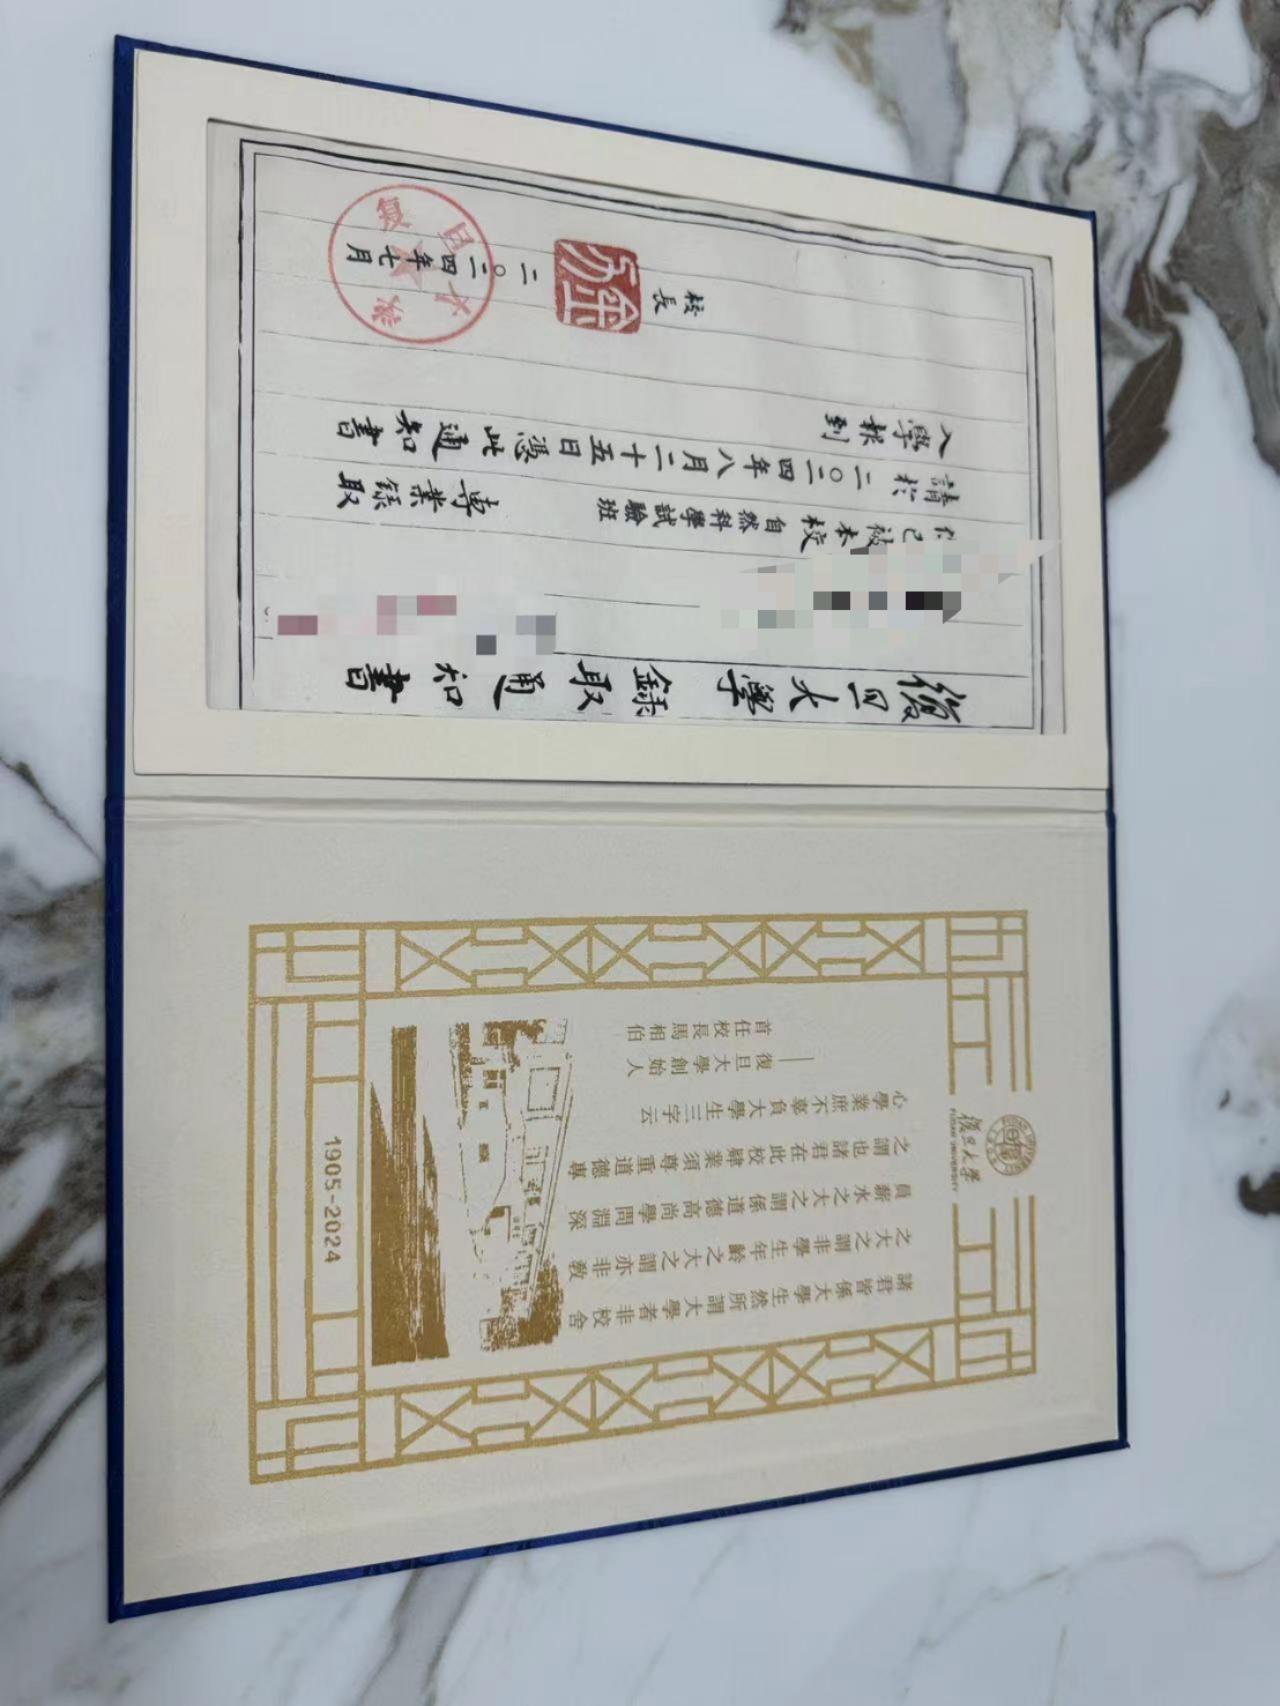 復旦大學
FUDAN UNIVERSITY
諸君皆係大學生然所謂大學者非校舍
之大之謂非學生年齡之大之謂亦非教
員薪水之大之謂係道德高尚學問淵深
之謂也諸君在此校肄業須尊重道德專
心學業庶不辜負大學生三字云
——復旦大學創始人
首任校長馬相伯
1905-2024
復旦大學錄取通知書
已被本校自然科學試驗班專業錄取
請於二〇二四年八月二十五日憑此通知書
入學報到
校長
金力
二〇二四年七月
復旦大學